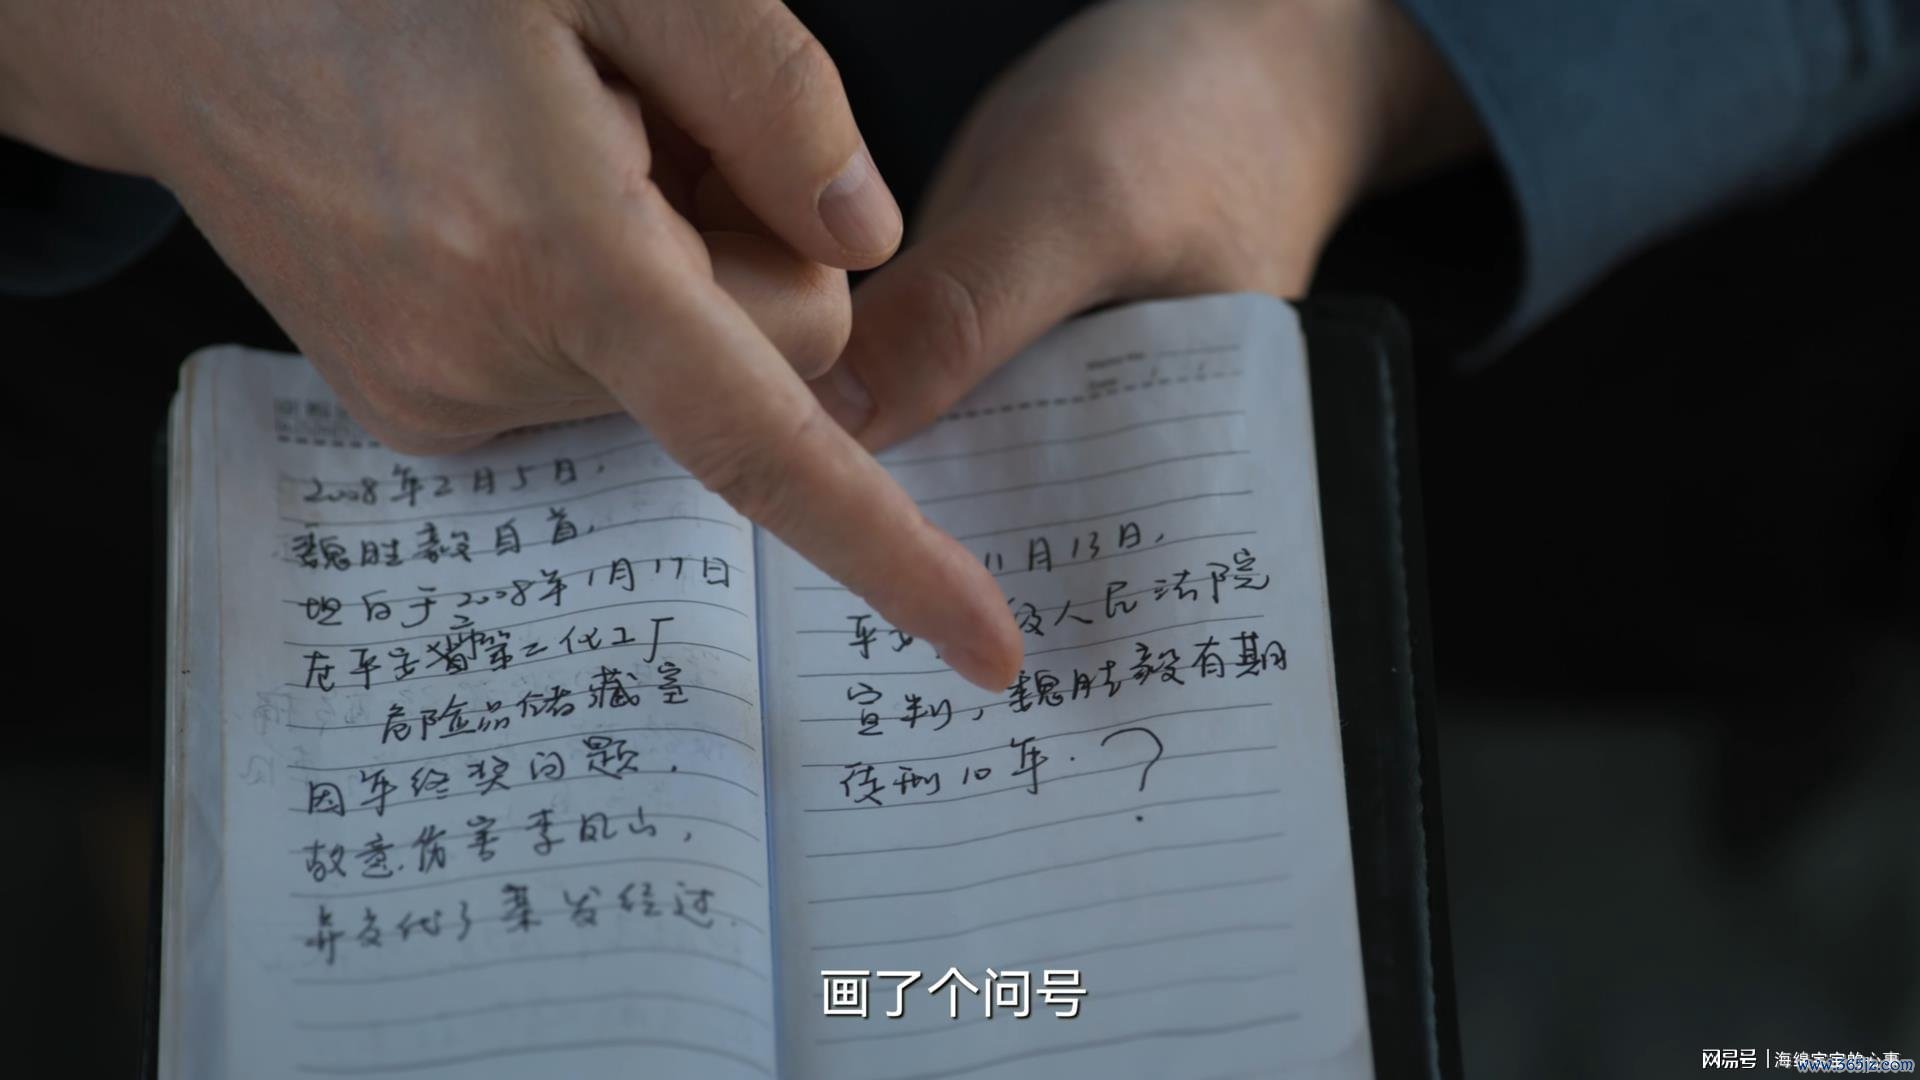 2008年2月5日,
魏胜毅自首,
坦白于2008年1月17日
在平宁省第二化工厂
危险品储藏室
因年终奖问题,
故意伤害李风山,
并交代了案发经过.
11月13日,
平 级人民法院
宣判,魏胜毅有期
徒刑10年.?
画了个问号
网易号|海绵宝宝的心事
www.365jz.com